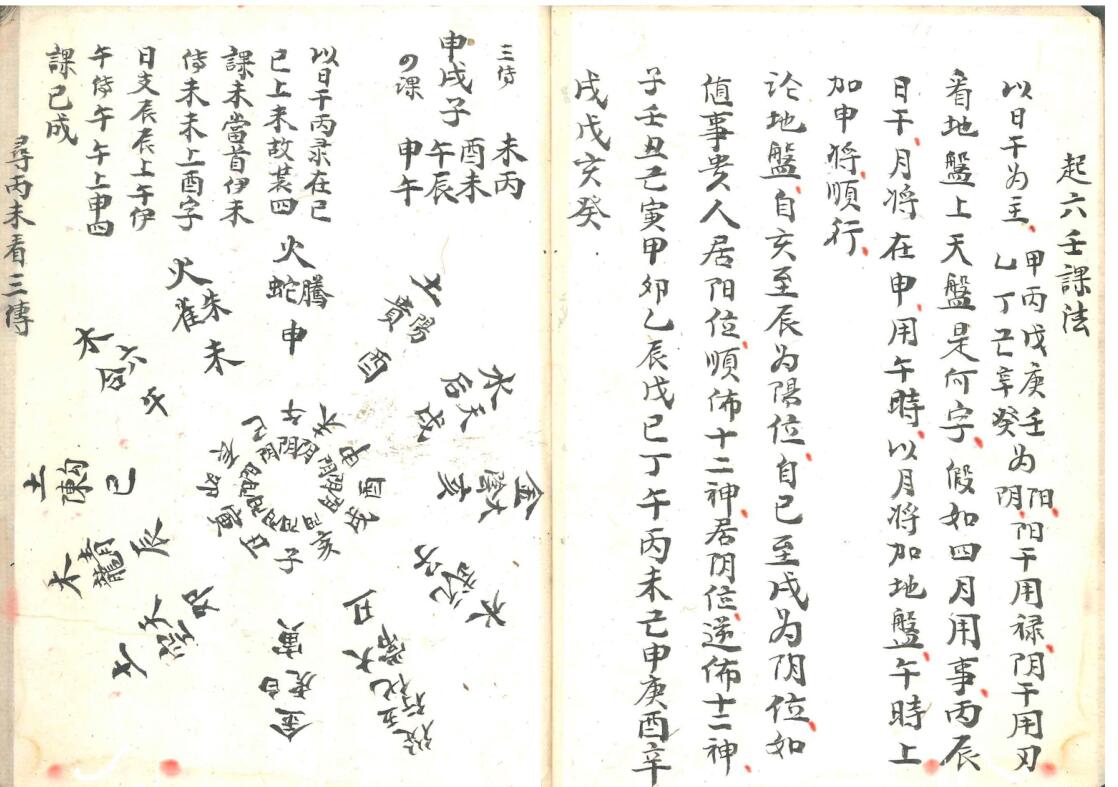 起六壬課法
以日干为主
甲丙戊庚壬为阳
乙丁己辛癸为阴
阳干用禄阴干用刃
看地盤上天盤是何字假如四月用事丙辰
日干月将在申用午時以月将加地盤午時上
加申将順行
论地盤自亥至辰为陽位自巳至戌为阴位如
值事贵人居阳位順佈十二神居阴位逆佈十二神
子壬丑己寅甲卯乙辰戊巳丁午丙未己申庚酉辛
戌戊亥癸
三传
申戌子
の课
未丙
酉未
午辰
申午
以日干丙录在巳
巳上未故装四
課未當首伊未
传未未上酉字
日支辰辰上午伊
午传午午上申四
課已成
尋丙未看三傳
火
騰蛇
申
土
陽貴
酉
水
天后
戌
金
大陰
亥
水
子
土
丑
寅
白虎
金
卯
土
辰
青龍
木
巳
勾陳
土
午
六合
木
未
朱雀
火
午
未
申
酉
戌
亥
子
丑
寅
卯
辰
巳